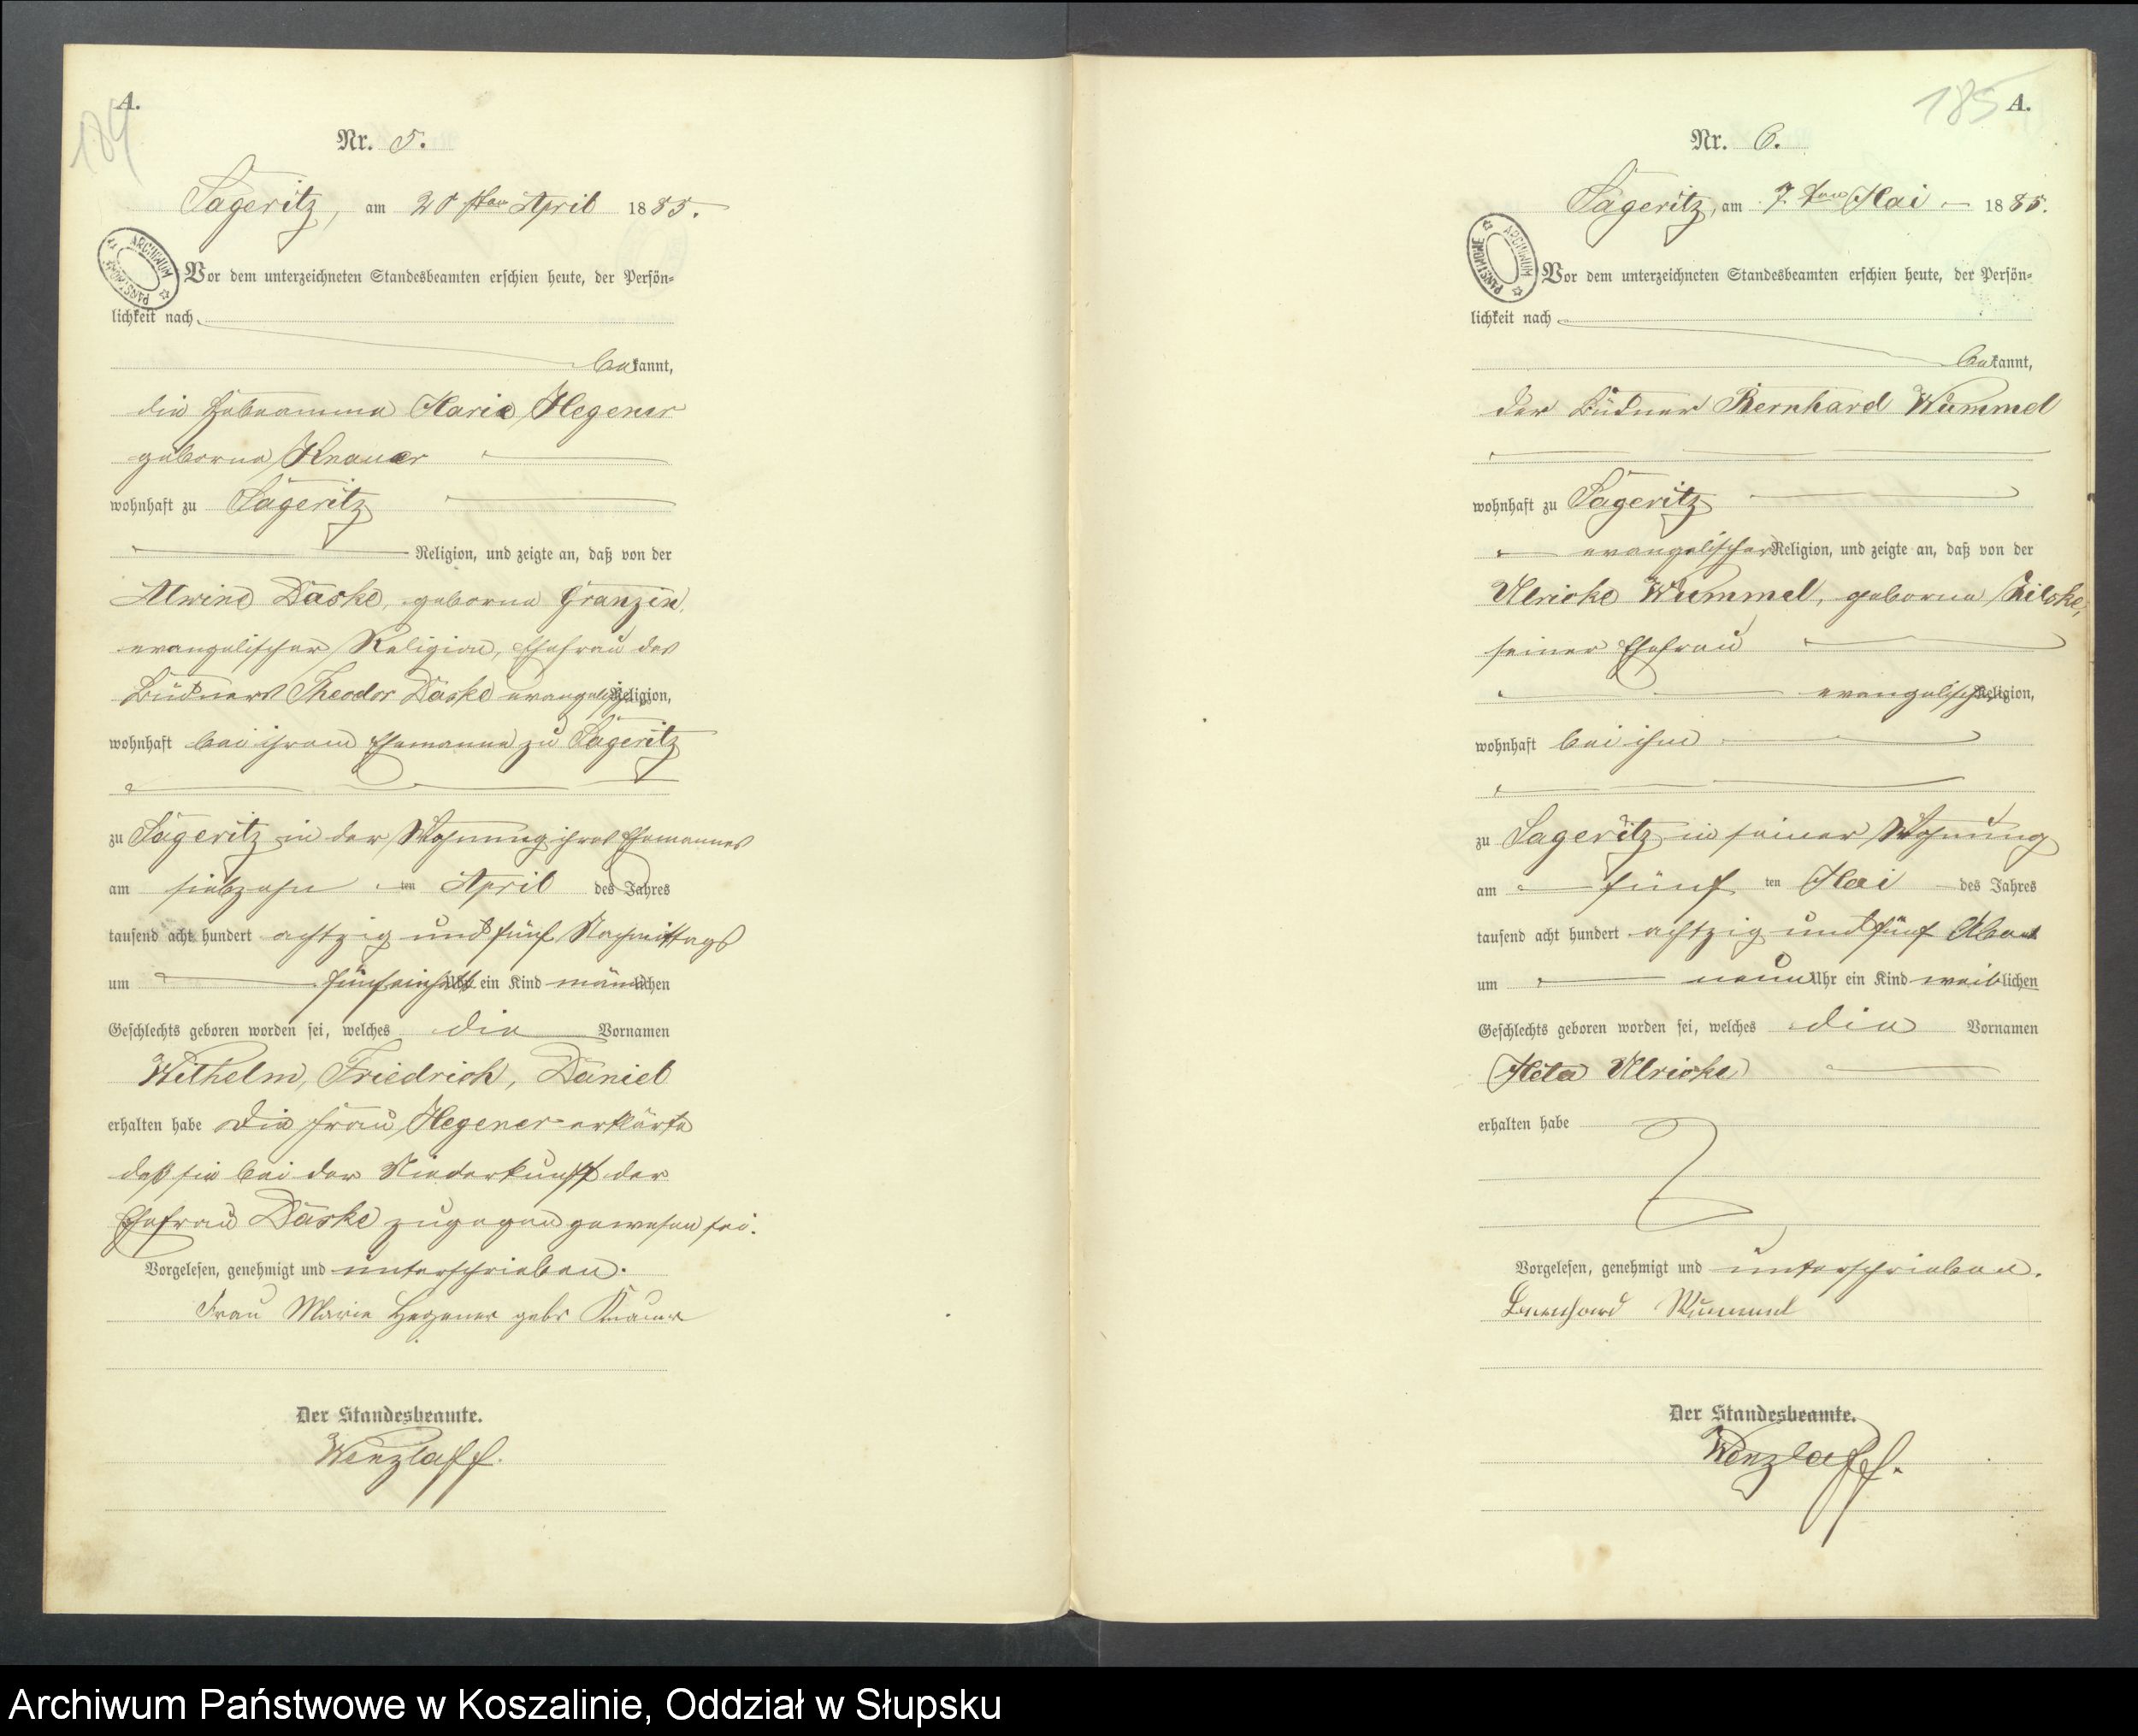 184
A.
Nr. 5.
Sageritz, am 20 sten April 1885.
ARCHIWUM PAŃSTWOWE
Vor dem unterzeichneten Standesbeamten erschien heute, der Persön-
lichkeit nach
bekannt,
die Hebeamme Marie Hegener
geborne Knauer
wohnhaft zu Sageritz
Religion, und zeigte an, daß von der
Alwine Daske, geborne Granzin,
evangelischer Religion, Ehefrau des
Büdners Theodor Daske evangelischer Religion,
wohnhaft bei ihrem Ehemanne zu Sageritz
zu Sageritz in der Wohnung ihres Ehemannes
am siebzehn ten April des Jahres
tausend acht hundert achtzig und fünf Nachmittags
um fünfeinhalb Uhr ein Kind männlichen
Geschlechts geboren worden sei, welches die Vornamen
Wilhelm, Friedrich, Daniel
erhalten habe Die Frau Hegener erklärte
daß sie bei der Niederkunft der
Ehefrau Daske zugegen gewesen sei.
Vorgelesen, genehmigt und unterschrieben.
Frau Marie Hegener gebr Knauer
Der Standesbeamte.
Wenzlaff.
185
A.
Nr. 6.
Sageritz, am 7. ten Mai 1885.
ARCHIWUM PAŃSTWOWE
Vor dem unterzeichneten Standesbeamten erschien heute, der Persön-
lichkeit nach
bekannt,
der Büdner Bernhard Wummel
wohnhaft zu Sageritz
evangelischer Religion, und zeigte an, daß von der
Ulricke Wummel, geborne
seiner Ehefrau
evangelischer Religion,
wohnhaft bei ihm
zu Sageritz in seiner Wohnung
am fünf ten Mai des Jahres
tausend acht hundert achtzig und fünf Abend
um neun Uhr ein Kind weiblichen
Geschlechts geboren worden sei, welches die Vornamen
Meta Ulricke
erhalten habe
Vorgelesen, genehmigt und unterschrieben.
Bernhard Wummel
Der Standesbeamte.
Wenzlaff.
Archiwum Państwowe w Koszalinie, Oddział w Słupsku